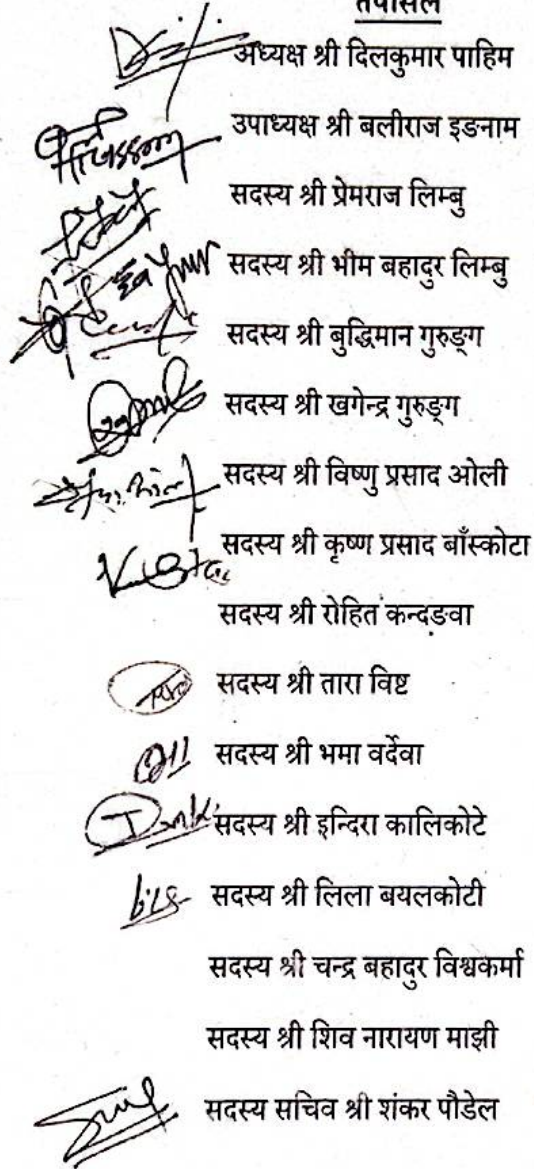 तपसिल
अध्यक्ष श्री दिलकुमार पाहिम
उपाध्यक्ष श्री बलीराज इङनाम
सदस्य श्री प्रेमराज लिम्बु
सदस्य श्री भीम बहादुर लिम्बु
सदस्य श्री बुद्धिमान गुरुङ्ग
सदस्य श्री खगेन्द्र गुरुङ्ग
सदस्य श्री विष्णु प्रसाद ओली
सदस्य श्री कृष्ण प्रसाद बाँस्कोटा
सदस्य श्री रोहित कन्दङवा
सदस्य श्री तारा विष्ट
सदस्य श्री भमा वर्देवा
सदस्य श्री इन्दिरा कालिकोटे
सदस्य श्री लिला बयलकोटी
सदस्य श्री चन्द्र बहादुर विश्वकर्मा
सदस्य श्री शिव नारायण माझी
सदस्य सचिव श्री शंकर पौडेल